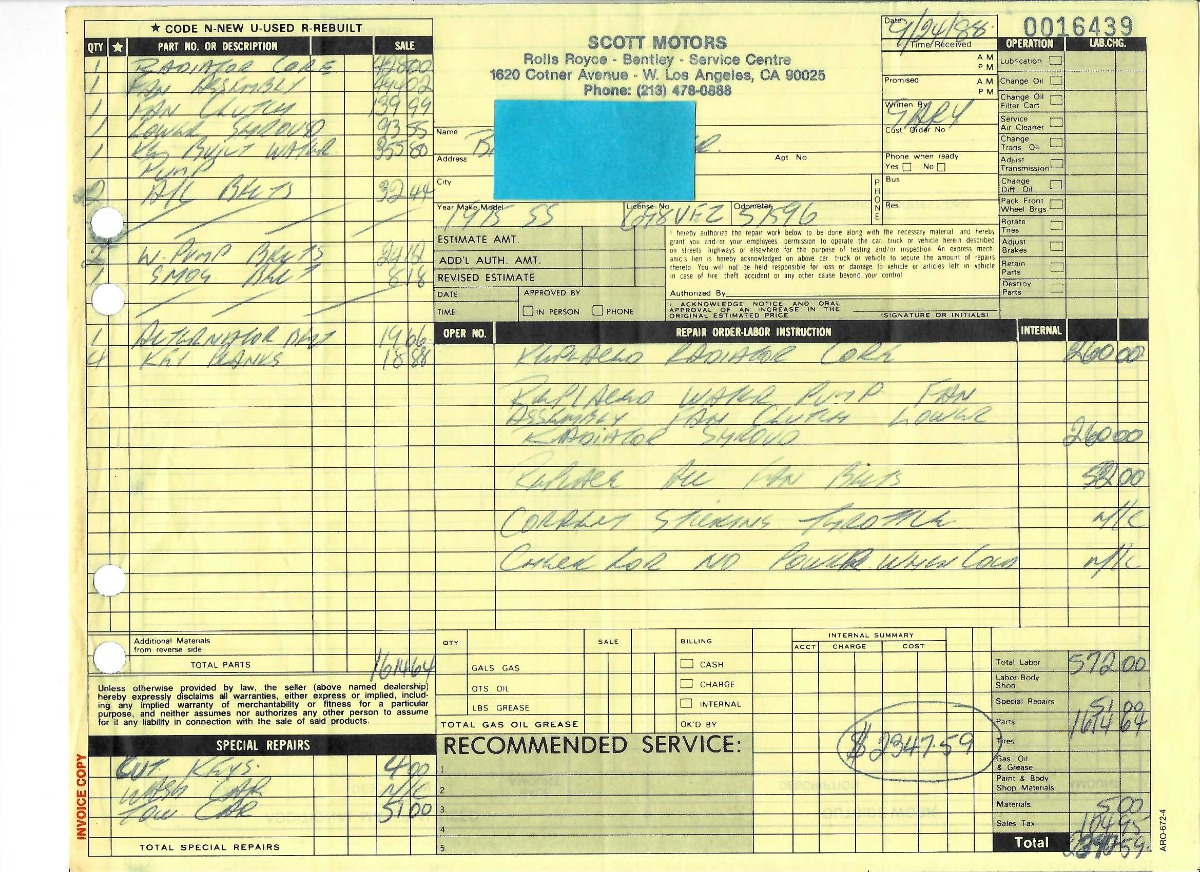 ★ CODE N-NEW U-USED R-REBUILT
QTY ★ PART NO. OR DESCRIPTION SALE
1 RADIATOR CORE 428 00
1 FAN ASSEMBLY
1 FAN CLUTCH 139 99
1 LOWER SHROUD 93 55
1 REBUILT WATER PUMP 355 80
2 A/C BELTS 32 44
2 W. PUMP BELTS 24 12
1 SMOG BELT 8 18
1 ALTERNATOR BELT 19 66
4 KEY BLANKS 18 88
Additional Materials
from reverse side
TOTAL PARTS 1614 64
Unless otherwise provided by law, the seller (above named dealership)
hereby expressly disclaims all warranties, either express or implied, includ-
ing any implied warranty of merchantability or fitness for a particular
purpose, and neither assumes nor authorizes any other person to assume
for it any liability in connection with the sale of said products.
SPECIAL REPAIRS
CUT KEYS. 4 00
WASH CAR N/C
TOW CAR 51 00
TOTAL SPECIAL REPAIRS
INVOICE COPY
SCOTT MOTORS
Rolls Royce - Bentley - Service Centre
1620 Cotner Avenue - W. Los Angeles, CA 90025
Phone: (213) 478-0888
Name
Address Apt. No.
City
Year Make Model 1975 SS License No. 018VEZ Odometer 51596
Date 9/24/88
Time/Received
AM
PM
Promised
AM
PM
Written By GARY
Cust Order No
Phone when ready
Yes No
PHONE
Bus
Res.
0016439
OPERATION LAB. CHG.
Lubrication
Change Oil
Change Oil
Filter Cart
Service
Air Cleaner
Change
Trans Oil
Adjust
Transmission
Change
Diff. Oil
Pack Front
Wheel Brgs
Rotate
Tires
Adjust
Brakes
Retain
Parts
Destroy
Parts
ESTIMATE AMT.
ADD'L AUTH. AMT.
REVISED ESTIMATE
DATE: APPROVED BY
TIME IN PERSON PHONE
I hereby authorize the repair work below to be done along with the necessary material, and hereby
grant you and/or your employees, permission to operate the car, truck or vehicle herein described
on streets, highways or elsewhere for the purpose of testing and/or inspection. An express mech
anic's lien is hereby acknowledged on above car, truck or vehicle to secure the amount of repairs
thereto. You will not be held responsible for loss or damage to vehicle or articles left in vehicle
in case of fire, theft, accident or any other cause beyond your control.
Authorized By
I ACKNOWLEDGE NOTICE AND ORAL
APPROVAL OF AN INCREASE IN THE
ORIGINAL ESTIMATED PRICE (SIGNATURE OR INITIALS)
OPER NO. REPAIR ORDER-LABOR INSTRUCTION INTERNAL
REPLACED RADIATOR CORE 260 00
REPLACED WATER PUMP FAN
ASSEMBLY FAN CLUTCH LOWER
RADIATOR SHROUD 260 00
REPLACE ALL FAN BELTS 52 00
CORRECT STICKING THROTTLE N/C
CHECK FOR NO POWER WHEN COLD N/C
QTY SALE
GALS GAS
QTS OIL
LBS GREASE
TOTAL GAS OIL GREASE
BILLING
CASH
CHARGE
INTERNAL
OK'D BY
INTERNAL SUMMARY
ACCT CHARGE COST
$2347.59
RECOMMENDED SERVICE:
1
2
3
4
5
Total Labor 572 00
Labor Body
Shop
Special Repairs 51 00
Parts 1614 64
Tires
Gas, Oil
& Grease
Paint & Body
Shop Materials
Materials 5 00
Sales Tax 104 95
Total
ARO-672-4